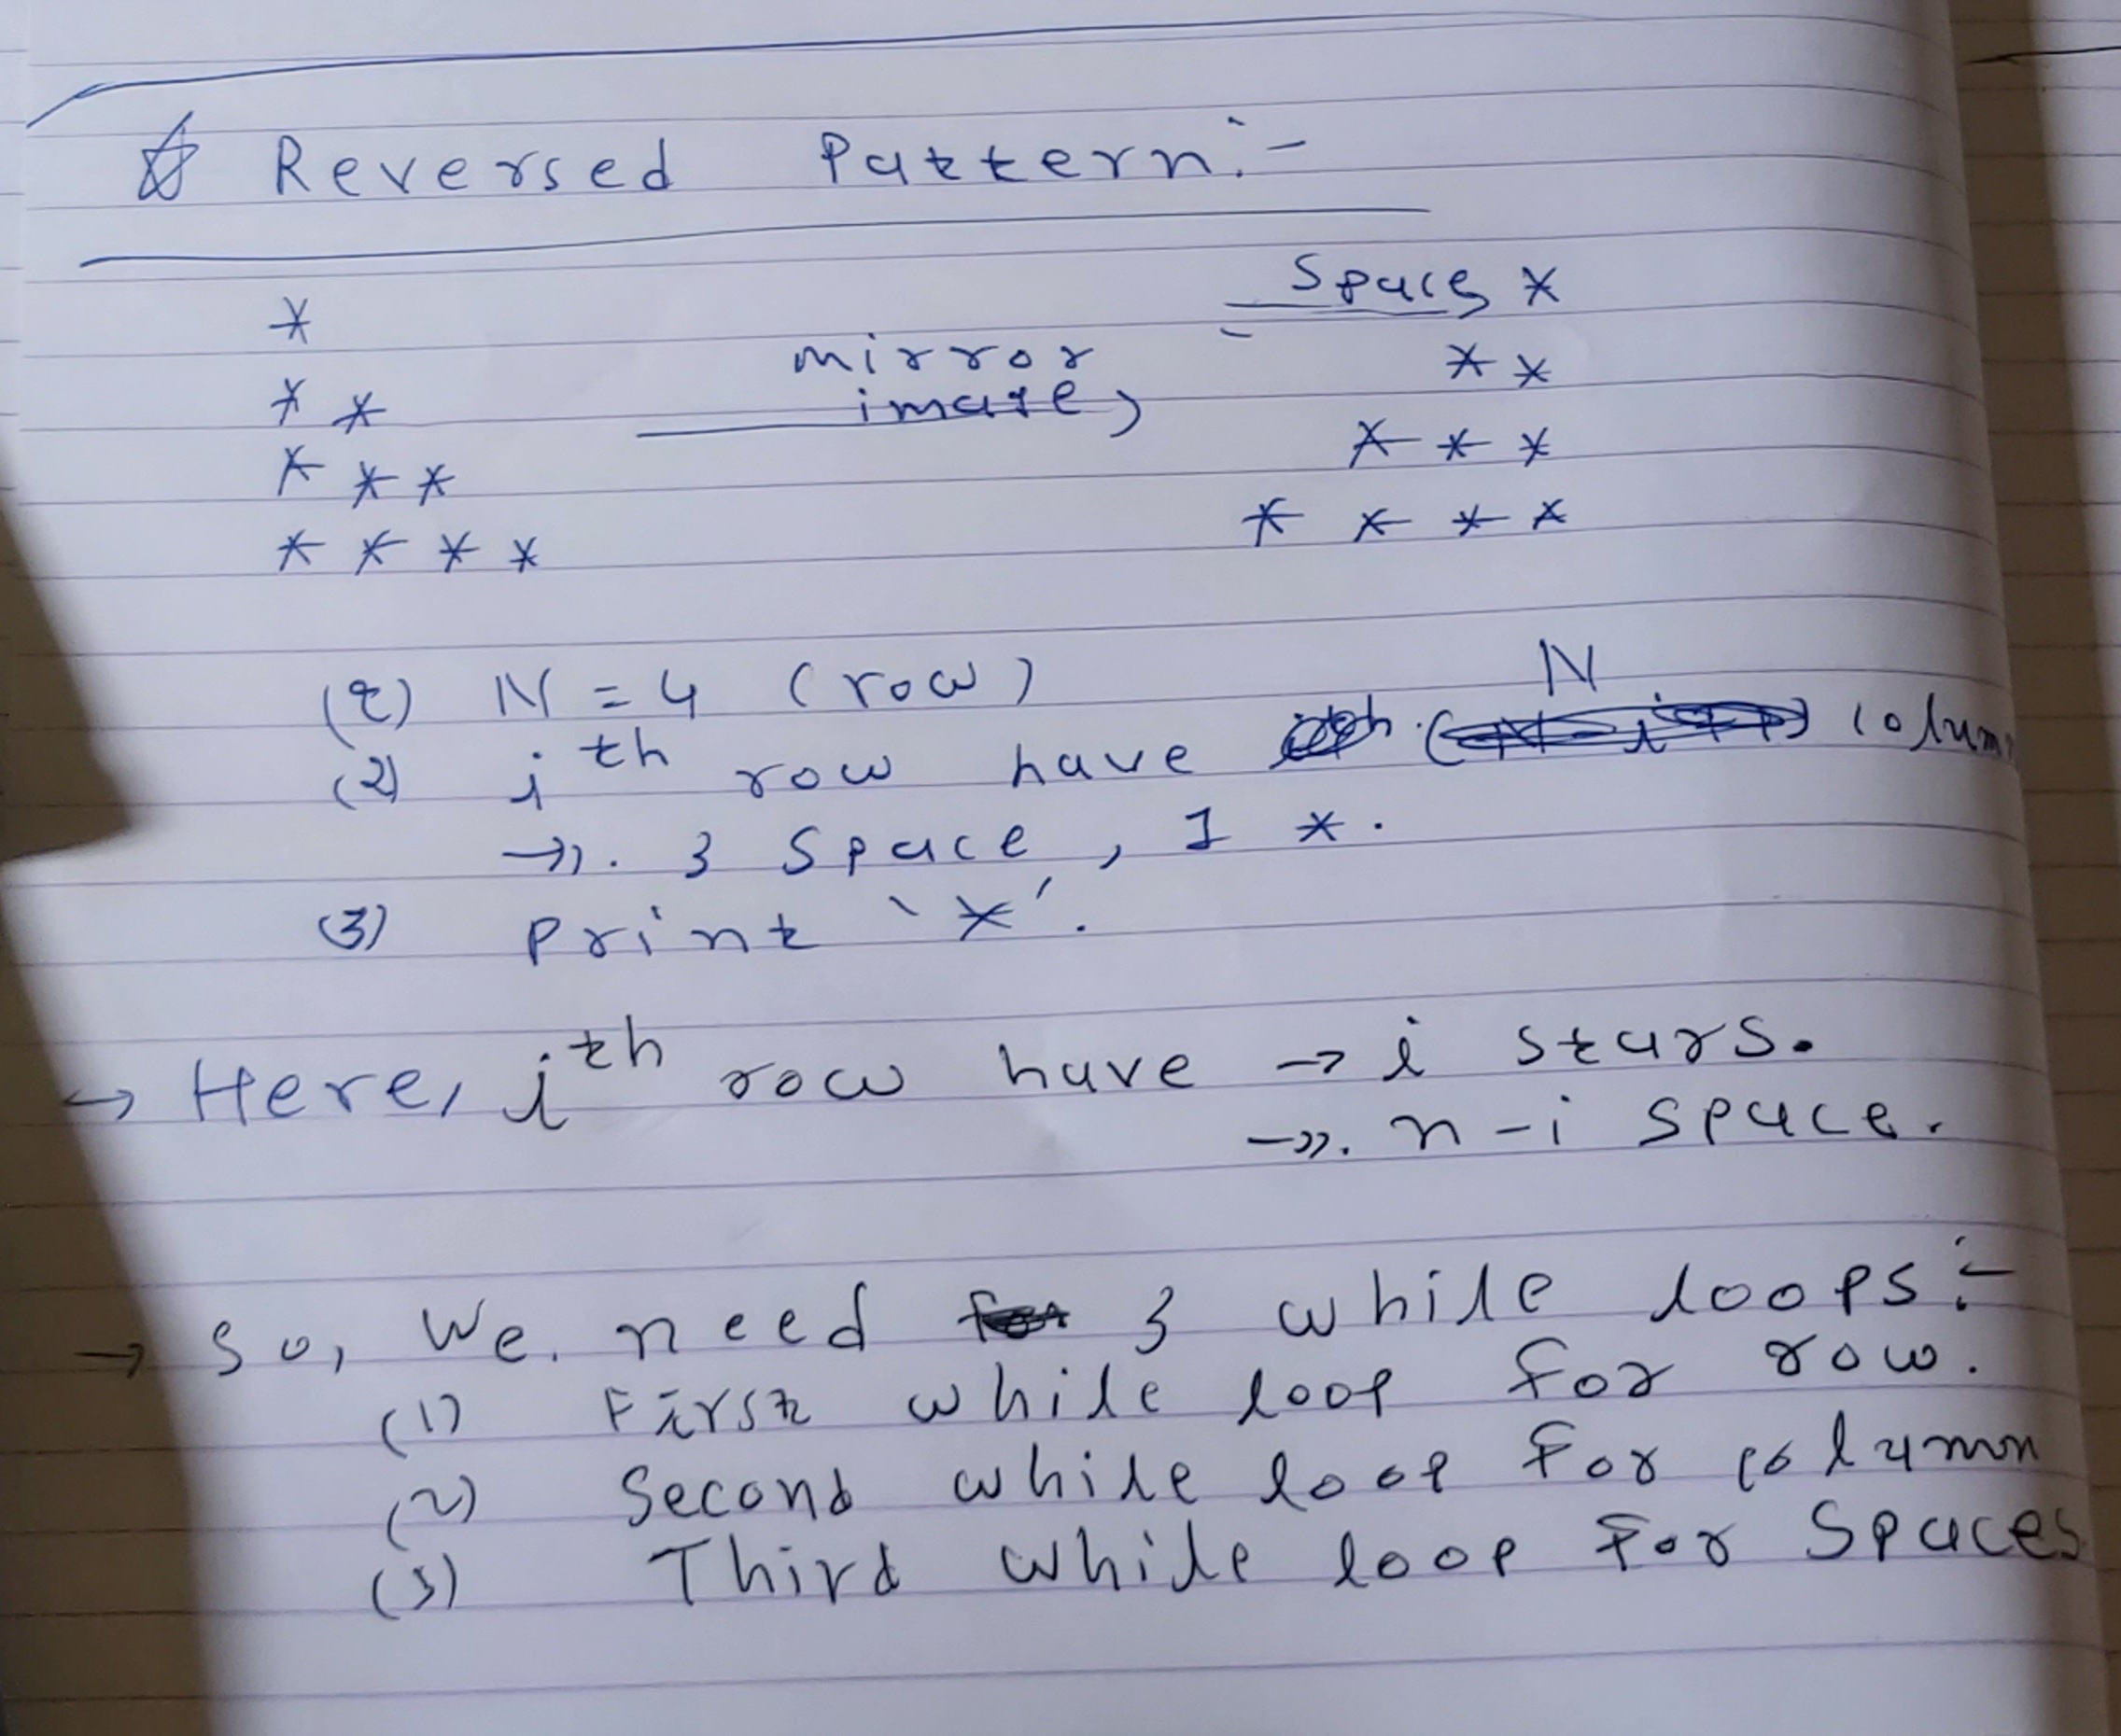 ☆ Reversed Pattern :-
* Spaces *
* * mirror image * *
* * * * * *
* * * * * * * *
(1) N = 4 (row)
(2) ith row have N column
→ 3 space, 1 *.
(3) print '*'.
→ Here, ith row have → i stars.
→ n-i space.
→ So, We need 3 while loops :-
(1) First while loop for row.
(2) Second while loop for column
(3) Third while loop for Spaces